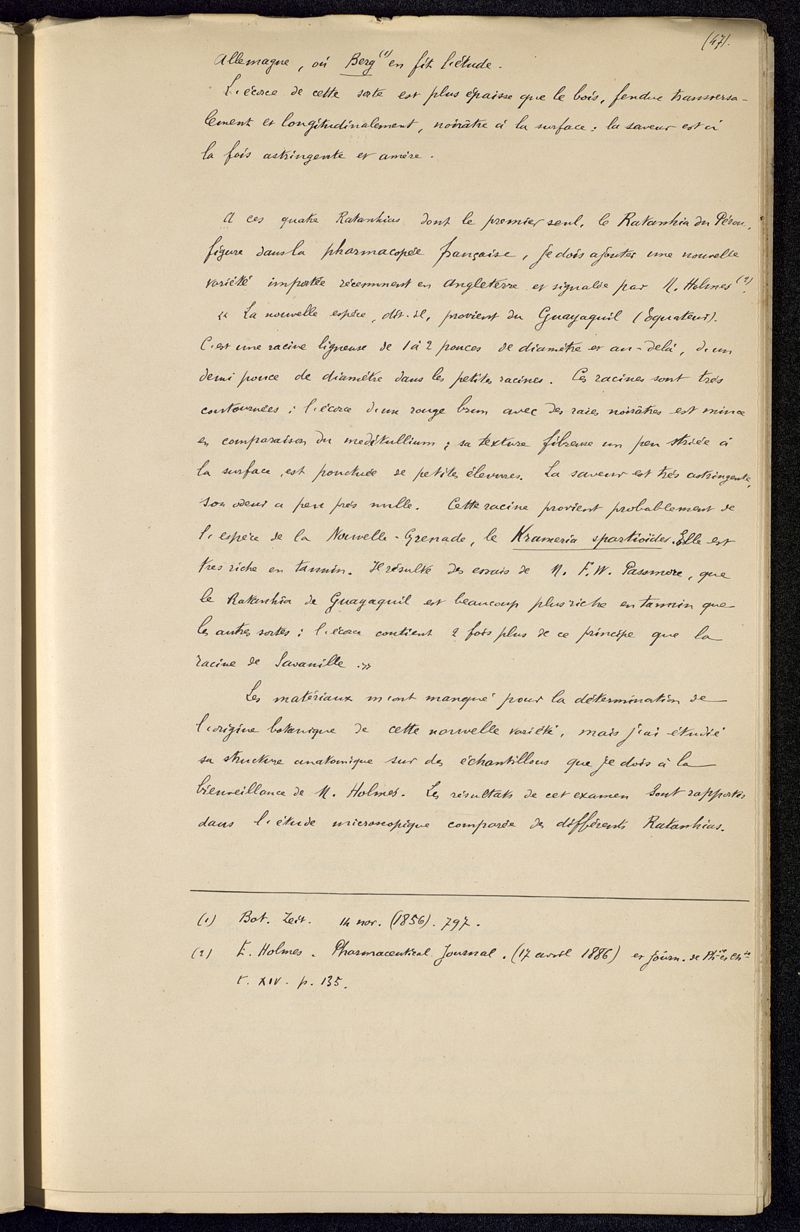 (47).
Allemagne, où Berg (1) en fit l'étude.
L'écorce de cette sorte est plus épaisse que le bois, fendue transversa-
lement et longitudinalement, noirâtre à la surface ; la saveur est à
la fois astringente et amère.
A ces quatre Ratanhias dont le premier seul, le Ratanhia du Pérou,
figure dans la pharmacopée française, je dois ajouter une nouvelle
variété importée récemment en Angleterre et signalée par M. Holmes (2).
« La nouvelle espèce, dit-il, provient du Guayaquil (Equateur).
C'est une racine ligneuse de 1 à 2 pouces de diamètre et au-delà, d'un
demi pouce de diamètre dans les petites racines. Ces racines sont très
contournées ; l'écorce d'un rouge brun avec des raies noirâtres est mince
en comparaison du meditullium ; sa texture fibreuse un peu striée à
la surface, est ponctuée de petites élevures. La saveur est très astringente,
son odeur a peu près nulle. Cette racine provient probablement de
l'espèce de la Nouvelle-Grenade, le Krameria spartioïdes. Elle est
très riche en tannin. Il résulte des essais de M. F. W. Passmore, que
le Ratanhia de Guayaquil est beaucoup plus riche en tannin que
les autres sortes ; l'écorce contient 2 fois plus de ce principe que la
racine de Savanille. »
Les matériaux m'ont manqué pour la détermination de
l'origine botanique de cette nouvelle variété, mais j'ai étudié
sa structure anatomique sur des échantillons que je dois à la
bienveillance de M. Holmes. Les résultats de cet examen sont rapportés
dans l'étude microscopique comparée des différents Ratanhias.
(1) Bot. Zeit. 14 nov. (1856). 797.
(2) E. Holmes. Pharmaceutical Journal. (17 avril 1886) et Journ. de Phie et Chie
t. XIV. p. 135.